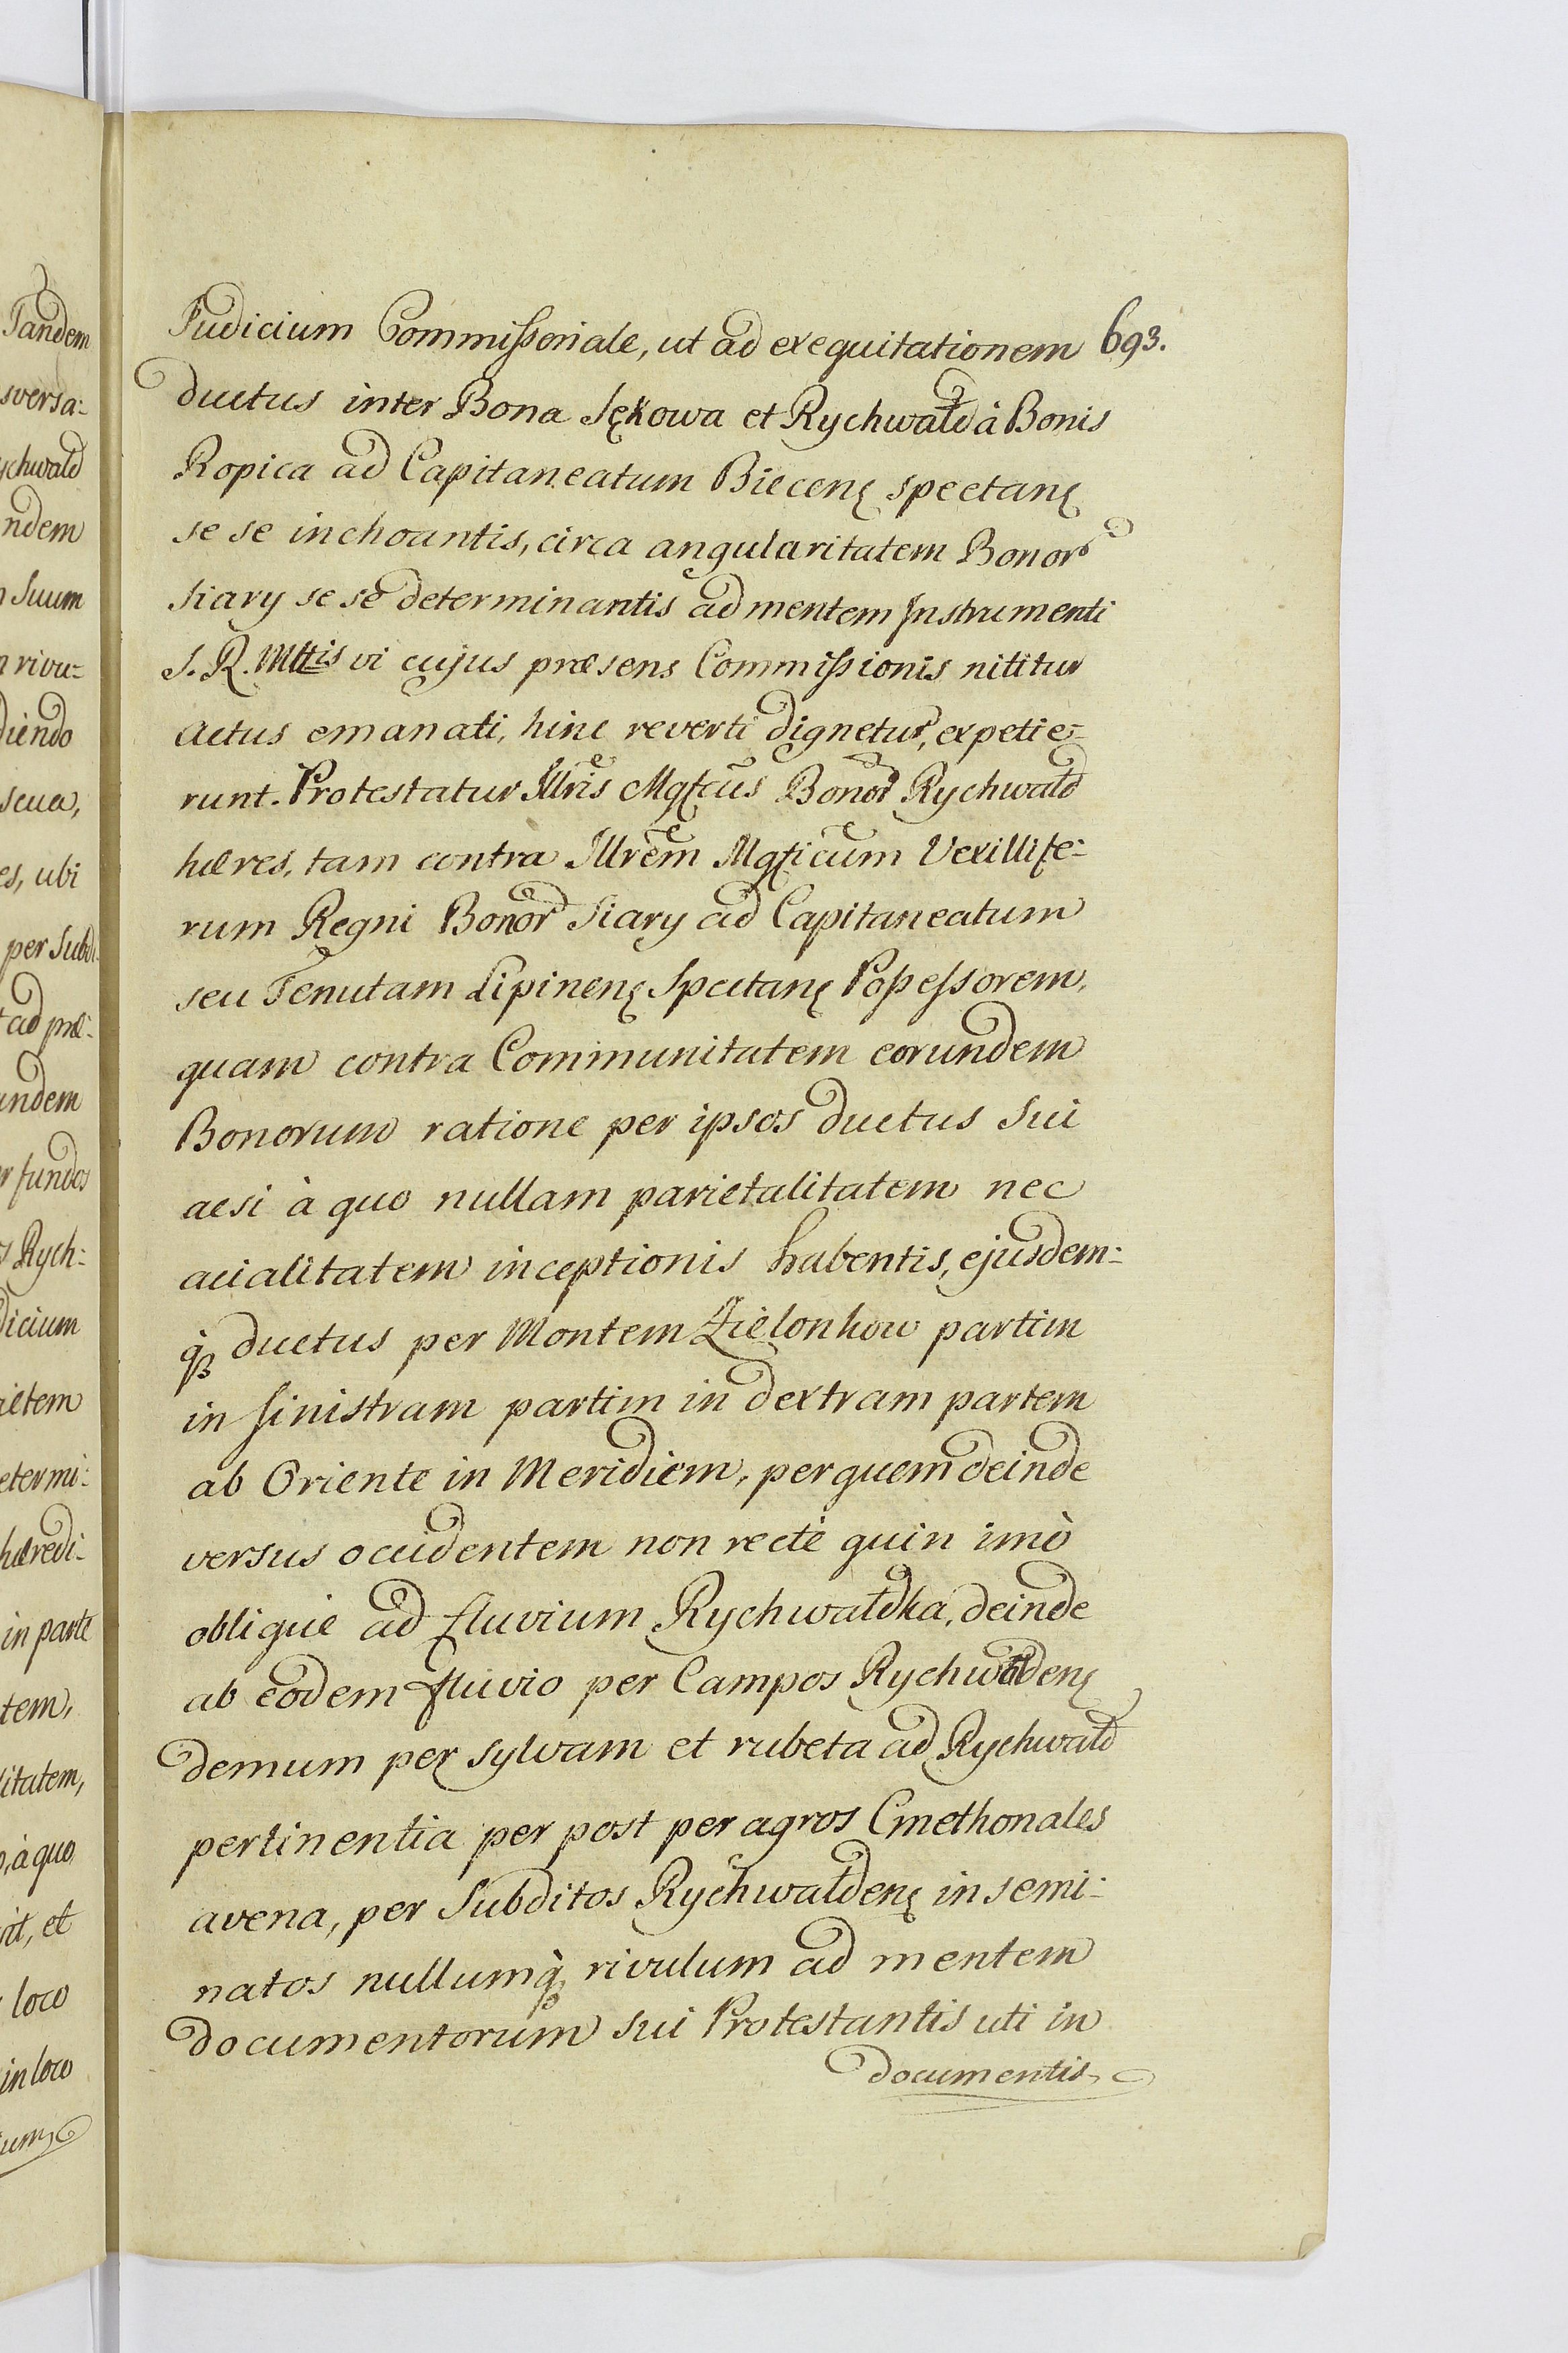 Tandem
sversa:
ychwald
ndem
Suum
rivu:
diendo
scua,
es, ubi
per Subdi:
ad præ:
undem
r fundos
Rych:
dicium
rietem
etermi:
hæredi:
in parte
tem,
litatem,
à quo
it, et
loco
in loco
Judicium Commissoriale, ut ad exequitationem 693.
ductus inter Bona Sękowa et Rychwałd à Bonis
Ropica ad Capitaneatum Biecenę spectanę
se se inchoantis, circa angularitatem Bonor
Siary se se determinantis ad mentem Instrumenti
S. R. Mttis vi cujus præsens Commissionis nititur
actus emanati, hinc reverti dignetur, expetie:
runt. Protestatur Illris Mgfcus Bonor Rychwald
hæres, tam contra Illrem Mgficum Vexillife:
rum Regni Bonor Siary ad Capitaneatum
seu Tenutam Lipinenę Spectanę Possessorem,
quam contra Communitatem eorundem
Bonorum ratione per ipsos ductus sui
acsi à quo nullam parietalitatem nec
acialitatem inceptionis habentis, ejusdem:
q̀ꝫ ductus per Montem Zielonhow partim
in sinistram partim in dextram partem
ab Oriente in Meridiem, per quem deinde
versus occidentem non rectè quin imò
oblique ad fluvium Rychwałdka, deinde
ab eodem fluvio per Campos Rychwałdenę
demum per sylvam et rubeta ad Rychwald
pertinentia per post per agros Cmethonales
avena, per Subditos Rychwałdenę in semi:
natos nullumq̀ꝫ rivulum ad mentem
documentorum sui Protestantis uti in
documentis